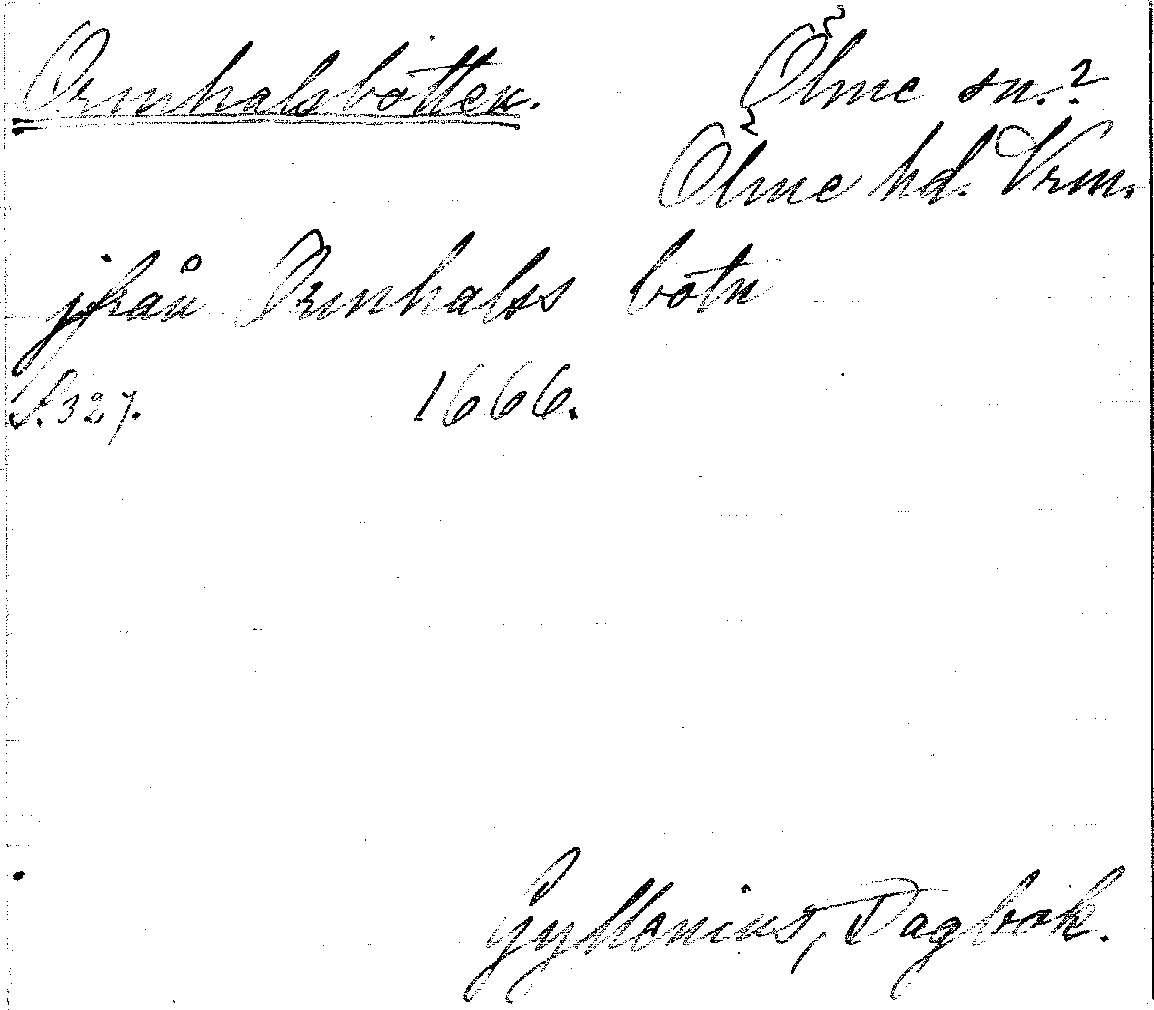 Ormhalsbotten.
Ölme sn.?
Ölme hd. Vrm.
ifrån Ormhalss botn
S. 327. 1666.
Gyllenius, Dagbok.